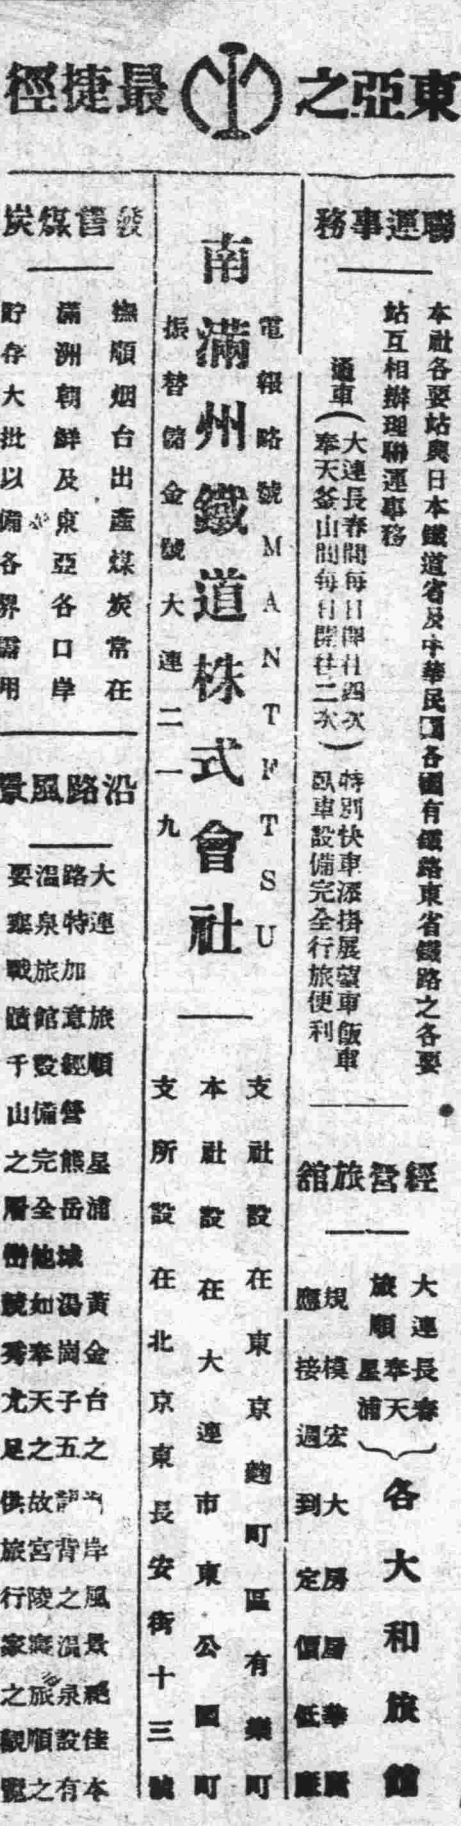 東亞之最捷徑
聯運事務
本社各要站與日本鐵道省及中華民國各國有鐵路東省鐵路之各要
站互相辦理聯運事務
通車(大連長春間每日開往四次
奉天釜山間每日開往二次)
特別快車添掛展望車飯車
臥車設備完全行旅便利
經營旅館
大連 長春
旅順 奉天
星浦
各大和旅館
規模宏大房屋華麗
應接週到定價低廉
電報略號MANTETSU
南滿州鐵道株式會社
振替儲金號大連二一九
支社設在東京麴町區有樂町
本社設在大連市東公園町
支所設在北京東長安街十三號
發售煤炭
撫順烟台出產煤炭常在
滿洲朝鮮及東亞各口岸
貯存大批以備各界需用
沿路風景
大連 旅順 星浦 黃金台之海岸風景絕佳本
路特加意經營熊岳城湯崗子五龍背之溫泉設有
溫泉旅館設備完全他如奉天之故宮陵寢旅順之
要塞戰蹟千山之層巒競秀尤足供旅行家之觀覽